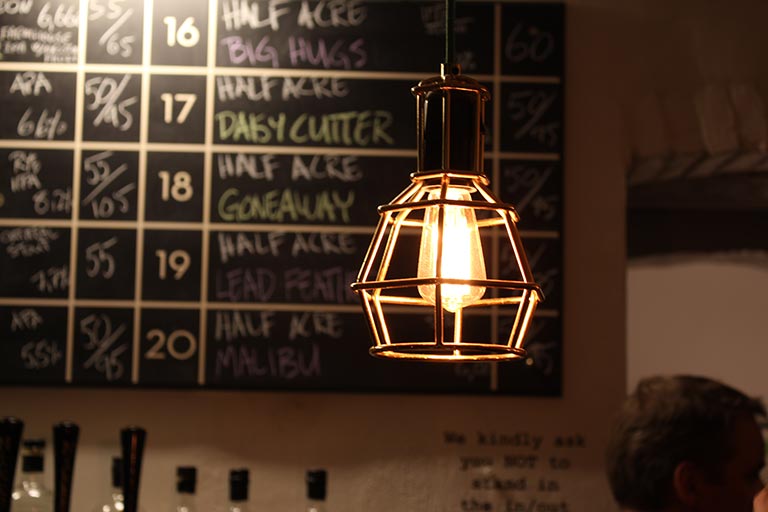 6,6%
55/65
16
HALF ACRE
BIG HUGS
60
APA
6.6%
50/45
17
HALF ACRE
DAISY CUTTER
50/45
RYE
IPA
8.2%
55/105
18
HALF ACRE
GONEAWAY
7.7%
55
19
HALF ACRE
LEAD
APA
5.5%
50/45
20
HALF ACRE
MALIBU
We kindly ask
you NOT to
stand in
the in/out